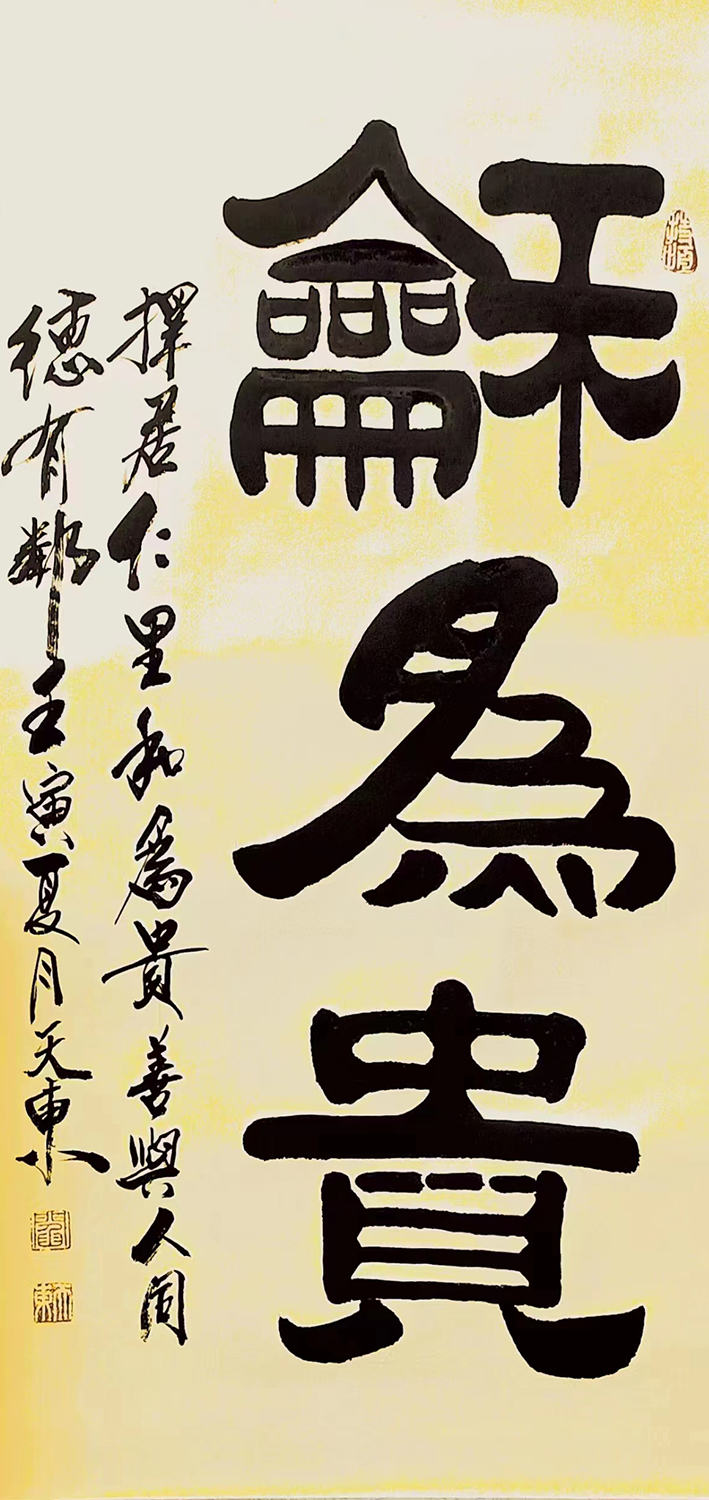 龢為貴
擇居仁里和為貴善與人同
德有鄰壬寅夏月天東